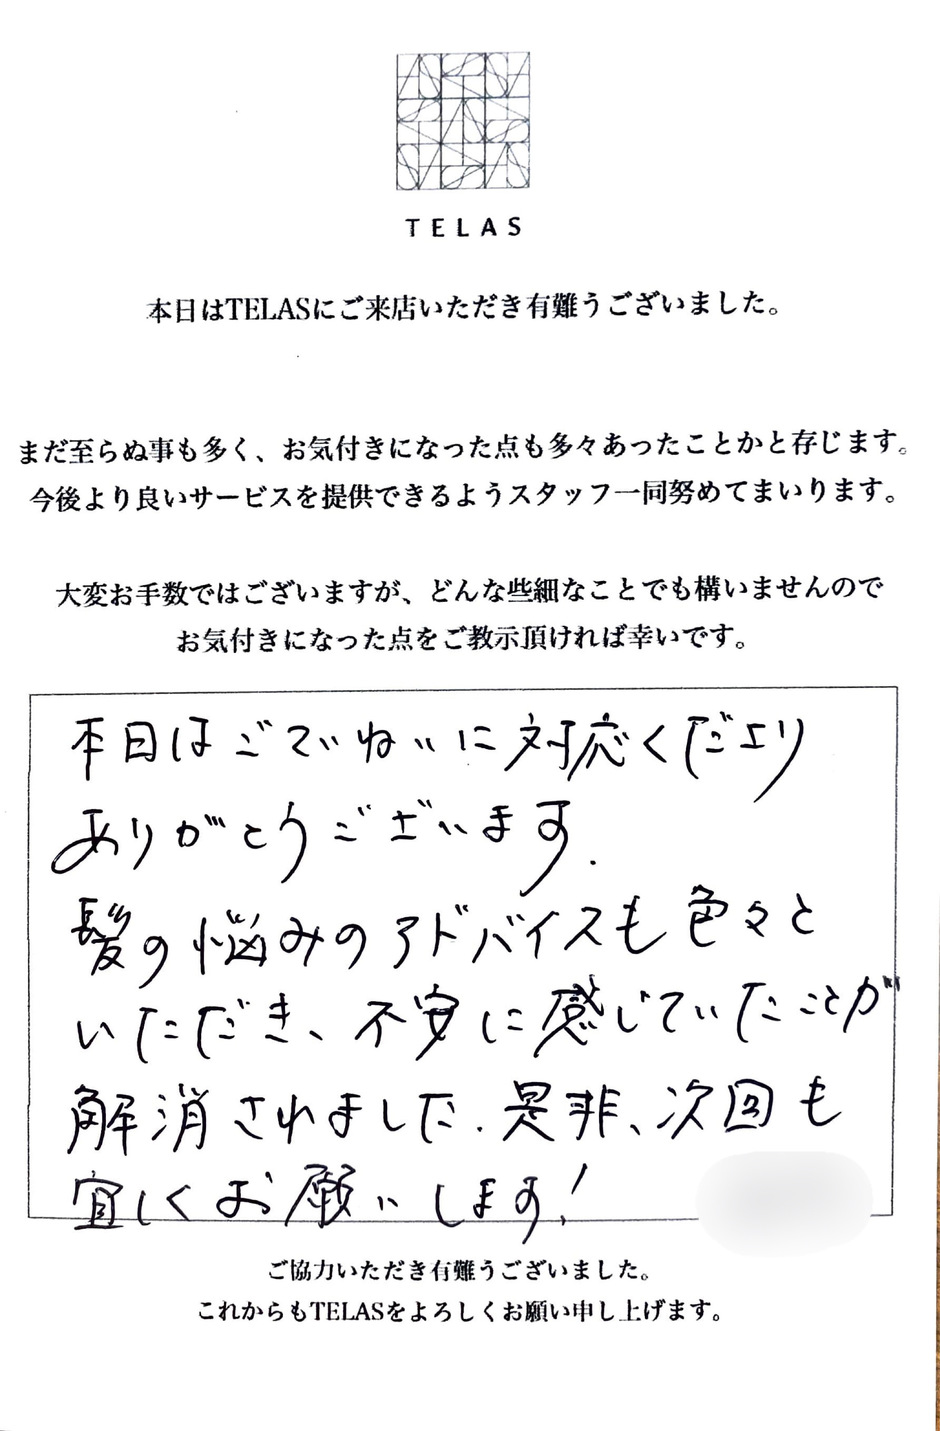 TELAS
本日はTELASにご来店いただき有難うございました。
まだ至らぬ事も多く、お気付きになった点も多々あったことかと存じます。
今後より良いサービスを提供できるようスタッフ一同努めてまいります。
大変お手数ではございますが、どんな些細なことでも構いませんので
お気付きになった点をご教示頂ければ幸いです。
本日はごていねいに対応くださり
ありがとうございます.
髪の悩みのアドバイスも色々と
いただき、不安に感じていたことが
解消されました.是非、次回も
宜しくお願いします!
ご協力いただき有難うございました。
これからもTELASをよろしくお願い申し上げます。